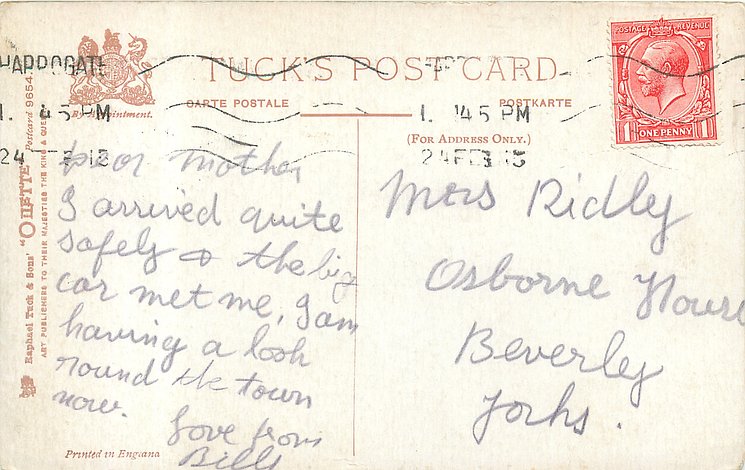 HARROGATE
1. 45 PM
24 FE 15
TUCK'S POST CARD
CARTE POSTALE
POSTKARTE
(FOR ADDRESS ONLY.)
By Appointment.
1. 45 PM
24 FE 15
POSTAGE REVENUE
1 ONE PENNY 1
Raphael Tuck & Sons' "OILETTE" Postcard 9654
ART PUBLISHERS TO THEIR MAJESTIES THE KING & QUEEN
Dear Mother
I arrived quite
safely & the big
car met me, I am
having a look
round the town
now.
Love from
Bill
Mrs Ridly
Osborne House
Beverly
Yorks.
Printed in England